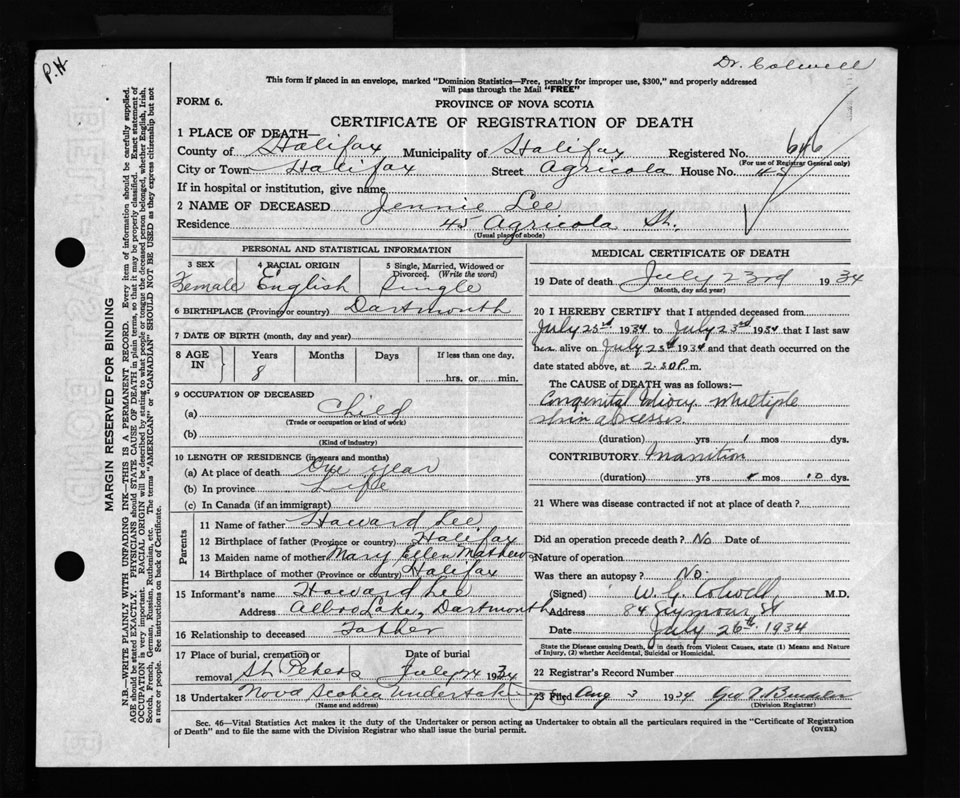 P.H
Dr. Colwell
This form if placed in an envelope, marked "Dominion Statistics—Free, penalty for improper use, $300," and properly addressed
will pass through the Mail "FREE"
FORM 6.
PROVINCE OF NOVA SCOTIA
CERTIFICATE OF REGISTRATION OF DEATH
1 PLACE OF DEATH—
County of Halifax Municipality of Halifax Registered No. 646
(For use of Registrar General only)
City or Town Halifax Street Agricola House No. 45
If in hospital or institution, give name
2 NAME OF DECEASED Jennie Lee
Residence 45 Agricola St.
(Usual place of abode)
PERSONAL AND STATISTICAL INFORMATION
3 SEX 4 RACIAL ORIGIN 5 Single, Married, Widowed or
Divorced. (Write the word)
Female English Single
6 BIRTHPLACE (Province or country) Dartmouth
7 DATE OF BIRTH (month, day and year)
8 AGE IN Years Months Days If less than one day,
8 hrs. or min.
9 OCCUPATION OF DECEASED
(a) Child
(Trade or occupation or kind of work)
(b)
(Kind of industry)
10 LENGTH OF RESIDENCE (in years and months)
(a) At place of death One year
(b) In province Life
(c) In Canada (if an immigrant)
Parents
11 Name of father Howard Lee
12 Birthplace of father (Province or country) Halifax
13 Maiden name of mother Mary Ellen Mathews
14 Birthplace of mother (Province or country) Halifax
15 Informant's name Howard Lee
Address Albro Lake, Dartmouth
16 Relationship to deceased Father
17 Place of burial, cremation or Date of burial
removal St. Peters July 24 1934
18 Undertaker Nova Scotia Undertaking
(Name and address)
MEDICAL CERTIFICATE OF DEATH
19 Date of death July 23rd 1934
(Month, day and year)
20 I HEREBY CERTIFY that I attended deceased from
July 23rd 1934 to July 23rd 1934 that I last saw
her alive on July 23rd 1934 and that death occurred on the
date stated above, at 2.30 P. m.
The CAUSE of DEATH was as follows:—
Congenital Idiocy Multiple
skin abscesses
(duration) yrs 1 mos dys.
CONTRIBUTORY Inanition
(duration) yrs mos 10 dys.
21 Where was disease contracted if not at place of death?
Did an operation precede death? No Date of
Nature of operation
Was there an autopsy? No.
(Signed) W. G. Colwell, M.D.
Address 84 Seymour St
Date July 26th 1934
State the Disease causing Death, or in death from Violent Causes, state (1) Means and Nature
of Injury, (2) whether Accidental, Suicidal or Homicidal.
22 Registrar's Record Number
23 Filed Aug 3 1934 Geo
(Division Registrar)
Sec. 46—Vital Statistics Act makes it the duty of the Undertaker or person acting as Undertaker to obtain all the particulars required in the "Certificate of Registration
of Death" and to file the same with the Division Registrar who shall issue the burial permit. (OVER)
MARGIN RESERVED FOR BINDING
N.B.—WRITE PLAINLY WITH UNFADING INK—THIS IS A PERMANENT RECORD. Every item of information should be carefully supplied.
AGE should be stated EXACTLY. PHYSICIANS should STATE CAUSE OF DEATH in plain terms, so that it may be properly classified. Exact statement of
OCCUPATION is very important. RACIAL ORIGIN will be described by stating to what people or league the deceased person belonged, whether English, Irish,
Scotch, French, German, Russian, Ruthenian, etc. The terms "AMERICAN" or "CANADIAN" SHOULD NOT BE USED as they express citizenship but not
a race or people. See instructions on back of Certificate.